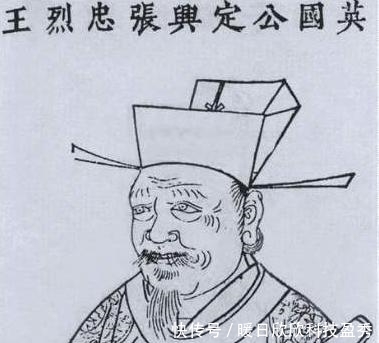 英國公定興張忠烈王
快传号 / 暖日欣欣科技盈秀